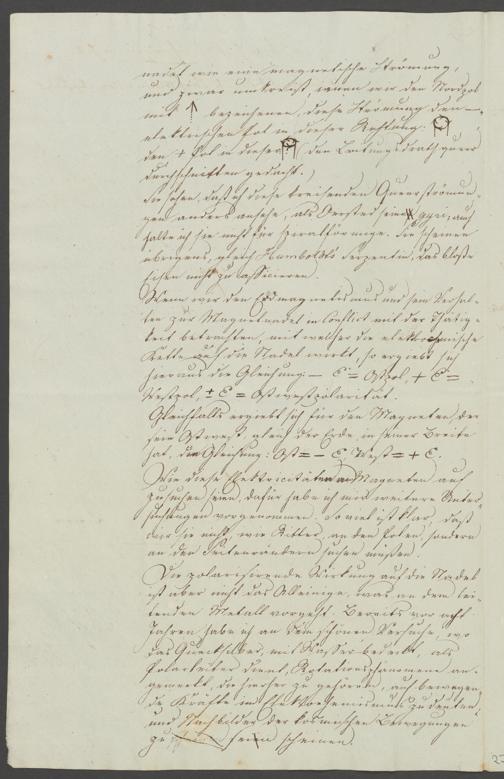 nadel wie eine magnetische Strömung,
und zwar umkreist, wenn wir den Nordpol
mit ↑ bezeichnen, diese Strömung den —
elektrischen Pol in dieser Richtung:
den + Pol in dieser: (den Leitungsdrath quer
durchschnitten gedacht.)
Sie sehen, daß ich diese kreisenden Querströmun-
gen anders ansehe, als Oersted seine gyri; auch
halte ich sie nicht für spiralförmige. Sie scheinen
übrigens, gleich Humboldts Serpentin, das bloße
Eisen nicht zu afficieren.
Wenn wir den Erdmagnetismus und sein Verhal-
ten zur Magnetnadel in Conflict mit der Thätig-
keit betrachten, mit welcher die elektrochemische
Kette auf die Nadel wirkt, so ergiebt sich
hieraus die Gleichung — E = Ostpol, + E =
Westpol, ± E = Ostwestpolarität.
Gleichfalls ergiebt sich für den Magneten, der
sein Ostwest, gleich der Erde, in seiner Breite
hat, die Gleichung: Ost = — E, West = + E.
Wie diese Elektricitäten am Magneten auf
zusuchen seien, dafür habe ich mir weitere Unter-
suchungen vorgenommen. Soviel ist klar, daß
wir sie nicht, wie Ritter, an den Polen, sondern
an den Seitenrändern suchen müssen.
Die polarisirende Wirkung auf die Nadel
ist aber nicht das Alleinige, was an dem lei-
tenden Metall vorgeht. Bereits vor acht
Jahren habe ich an dem schönen Versuche, wo
das Quecksilber, mit Wasser bedeckt, als
Polarleiter dient, Rotationsphänomene an-
gemerkt, die hierher zu gehören, auf bewegen-
de Kräfte im Elektrochemismus zu deuten,
und Nachbilder der kosmischen Bewegungen
zu sein scheinen.